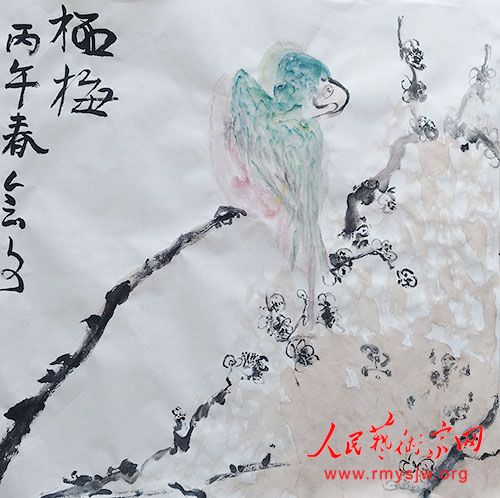 栖梅
丙午春
人民艺术家网
www.rmysjw.org